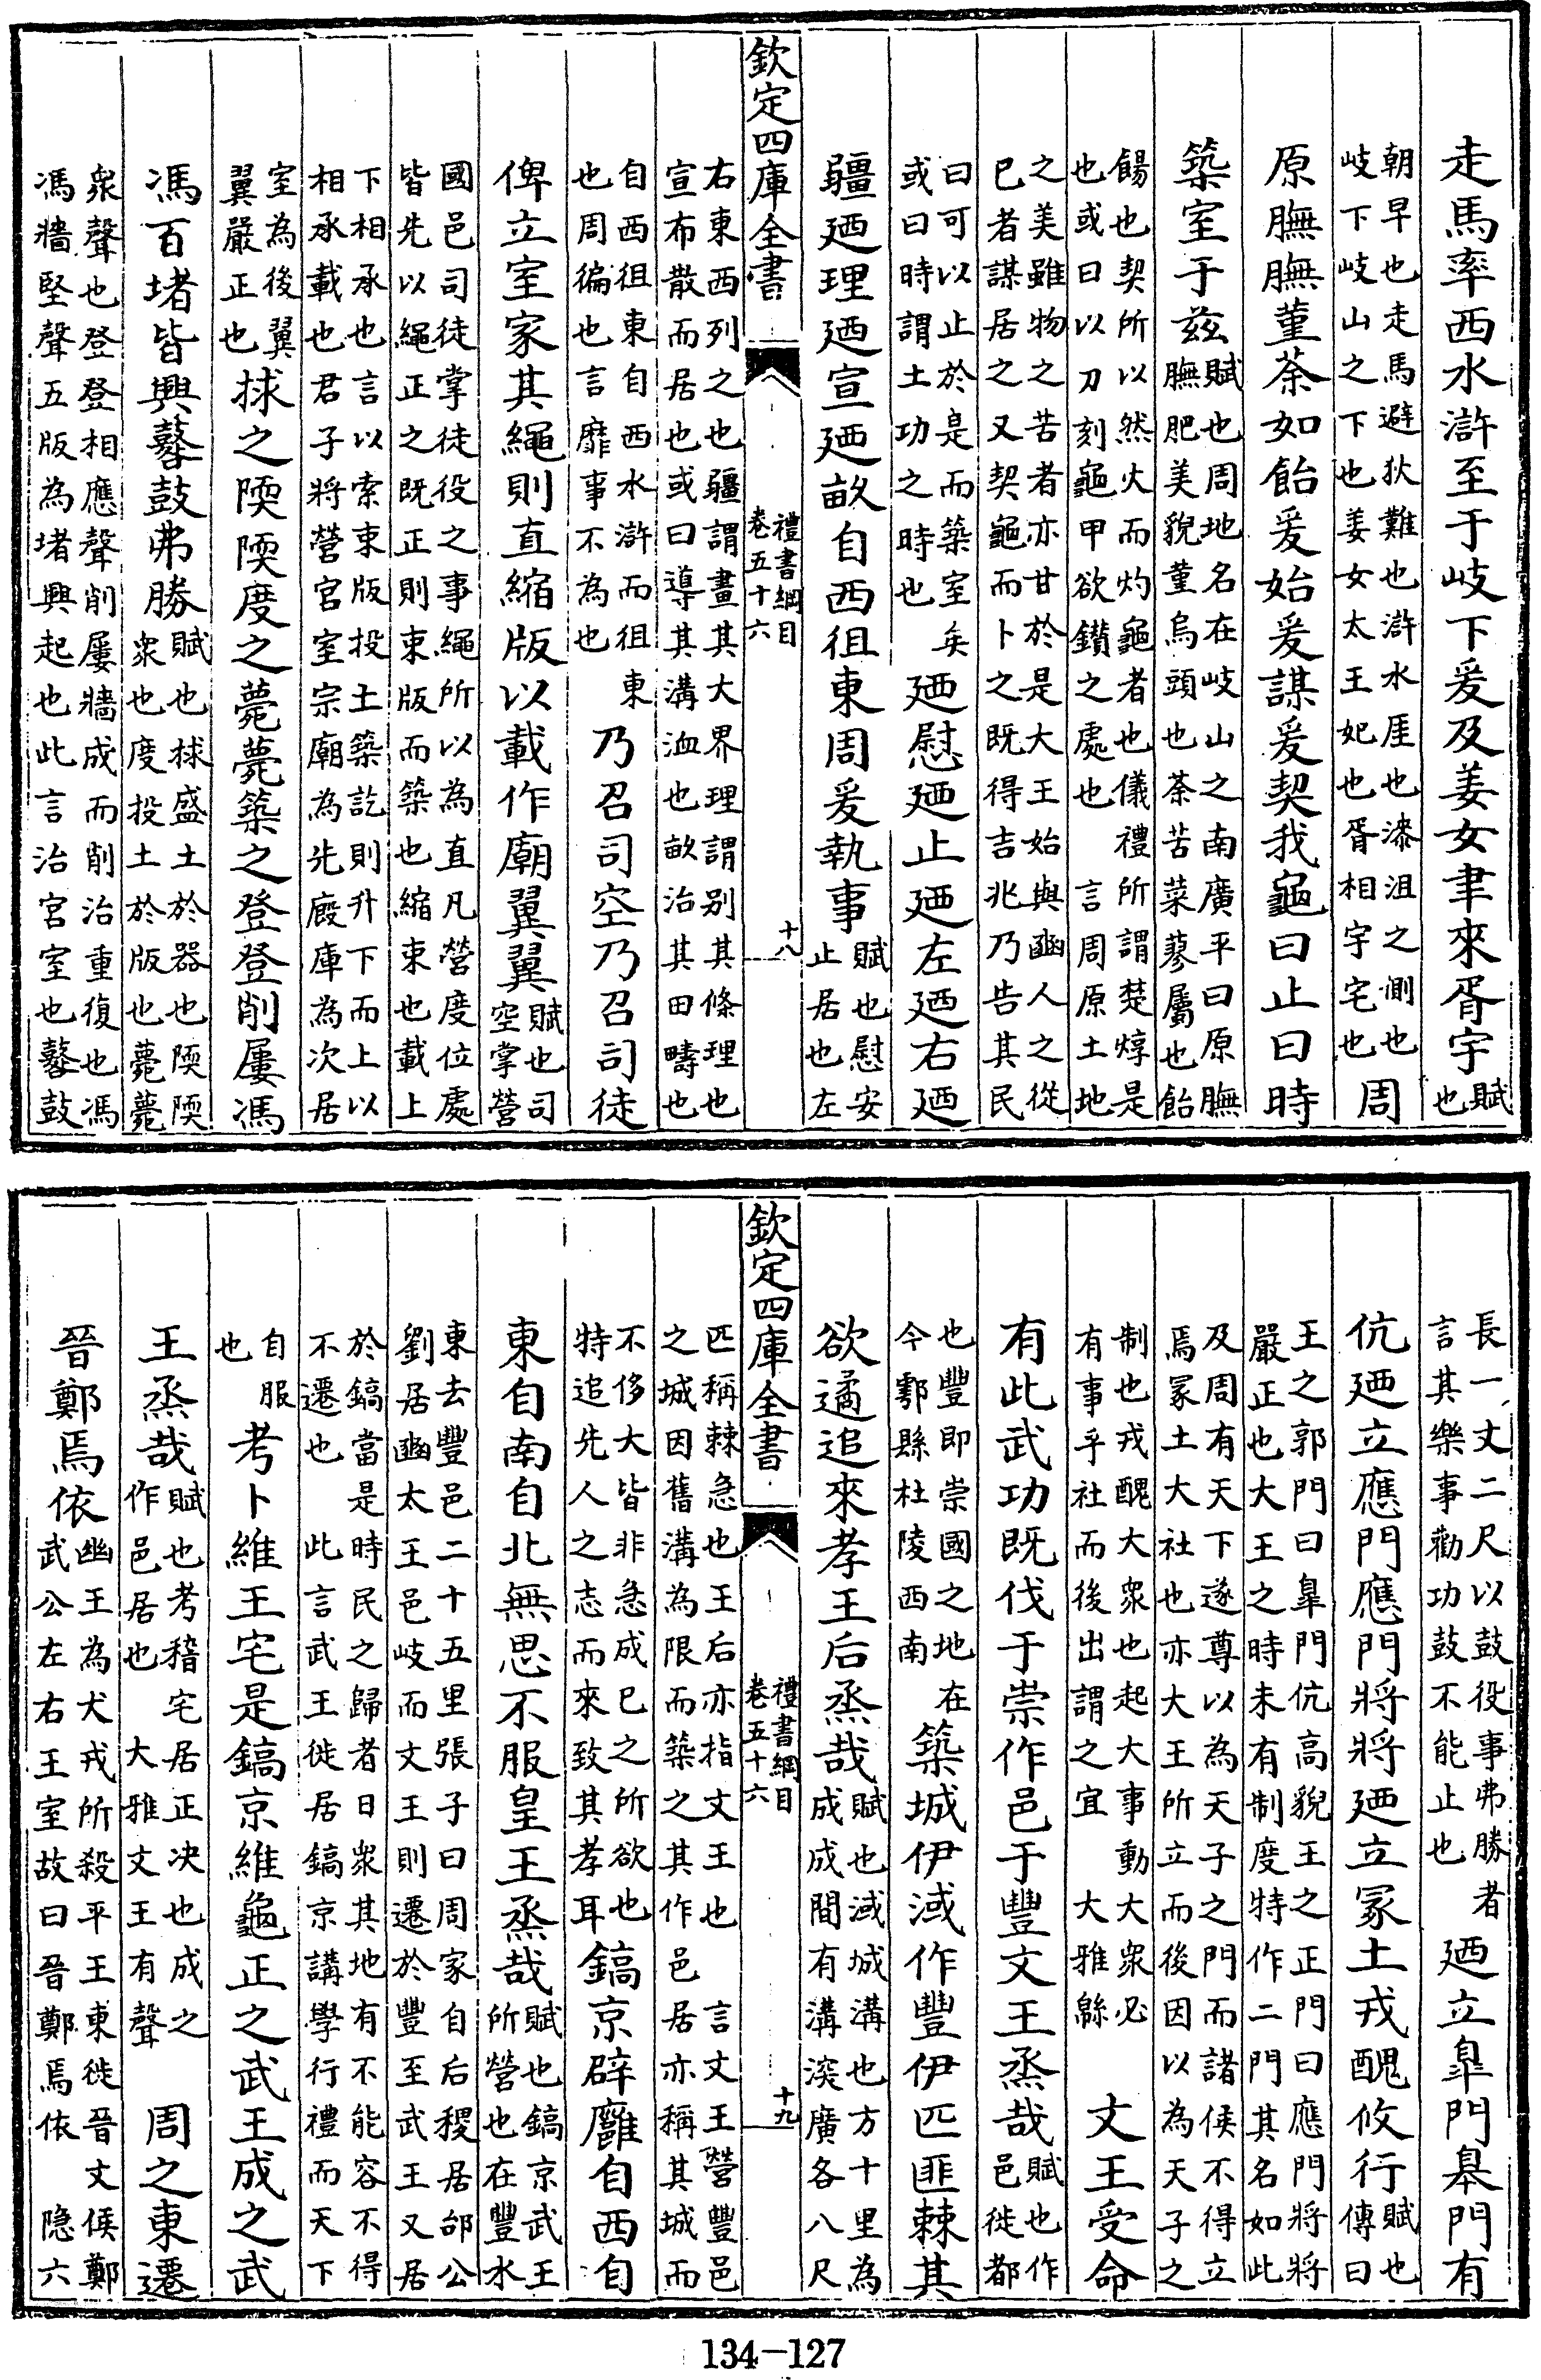 走馬率西水滸至于岐下爰及姜女聿來胥宇賦也
朝早也走馬避狄難也滸水厓也漆沮之側也
岐下岐山之下也姜女太王妃也胥相宇宅也周
原膴膴菫荼如飴爰始爰謀爰契我龜曰止曰時
築室于兹賦也周地名在岐山之南廣平曰原膴
膴肥美貌菫烏頭也荼苦菜蓼屬也飴
餳也契所以然火而灼龜者也儀禮所謂楚焞是
也或曰以刀刻龜甲欲鑽之處也言周原土地
之美雖物之苦者亦甘於是大王始與豳人之從
已者謀居之又契龜而卜之既得吉兆乃告其民
曰可以止於是而築室矣
或曰時謂土功之時也廼慰廼止廼左廼右廼
疆廼理廼宣廼畝自西徂東周爰執事賦也慰安
止居也左
欽定四庫全書
禮書綱目
卷五十六
十八
右東西列之也疆謂畫其大界理謂别其條理也
宣布散而居也或曰導其溝洫也畝治其田疇也
自西徂東自西水滸而徂東
也周徧也言靡事不為也乃召司空乃召司徒
俾立室家其繩則直縮版以載作廟翼翼賦也司
空掌營
國邑司徒掌徒役之事繩所以為直凡營度位處
皆先以繩正之既正則束版而築也縮束也載上
下相承也言以索束版投土築訖則升下而上以
相承載也君子將營宮室宗廟為先廐庫為次居
室為後翼
翼嚴正也捄之陾陾度之薨薨築之登登削屢馮
馮百堵皆興鼛鼓弗勝賦也捄盛土於器也陾陾
衆也度投土於版也薨薨
衆聲也登登相應聲削屢牆成而削治重復也馮
馮牆堅聲五版為堵興起也此言治宮室也鼛鼓
長一丈二尺以鼓役事弗勝者
言其樂事勸功鼓不能止也廼立臯門臯門有
伉廼立應門應門將將廼立冢土戎醜攸行賦也
傳曰
王之郭門曰臯門伉高貌王之正門曰應門將將
嚴正也大王之時未有制度特作二門其名如此
及周有天下遂尊以為天子之門而諸侯不得立
焉冢土大社也亦大王所立而後因以為天子之
制也戎醜大衆也起大事動大衆必
有事乎社而後出謂之宜大雅緜文王受命
有此武功既伐于崇作邑于豐文王烝哉賦也作
邑徙都
也豐即崇國之地在
今鄠縣杜陵西南築城伊淢作豐伊匹匪棘其
欲遹追來孝王后烝哉賦也淢城溝也方十里為
成成間有溝深廣各八尺
欽定四庫全書
禮書綱目
卷五十六
十九
匹稱棘急也王后亦指文王也言文王營豐邑
之城因舊溝為限而築之其作邑居亦稱其城而
不侈大皆非急成已之所欲也
特追先人之志而來致其孝耳鎬京辟廱自西自
東自南自北無思不服皇王烝哉賦也鎬京武王
所營也在豐水
東去豐邑二十五里張子曰周家自后稷居邰公
劉居豳太王邑岐而文王則遷於豐至武王又居
於鎬當是時民之歸者日衆其地有不能容不得
不遷也此言武王徙居鎬京講學行禮而天下
自服
也考卜維王宅是鎬京維龜正之武王成之武
王烝哉賦也考稽宅居正決也成之
作邑居也大雅文王有聲周之東遷
晉鄭焉依幽王為犬戎所殺平王東徙晉文侯鄭
武公左右王室故曰晉鄭焉依隐六
134—127